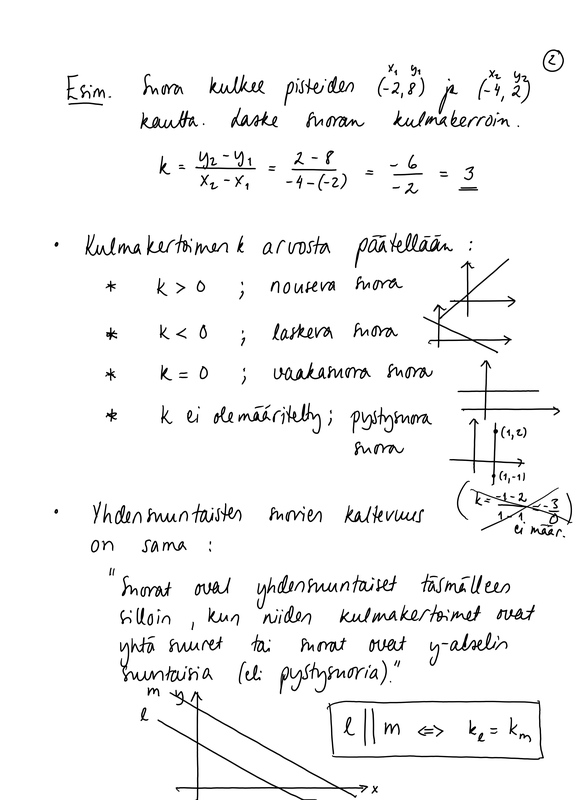 2
x₁ y₁ x₂ y₂
Esim. Suora kulkee pisteiden (-2,8) ja (-4, 2)
kautta. Laske suoran kulmakerroin.
k = (y₂ - y₁)/(x₂ - x₁) = (2 - 8)/(-4-(-2)) = (-6)/(-2) = 3
• Kulmakertoimen k arvosta päätellään :
* k > 0 ; nouseva suora
* k < 0 ; laskeva suora
* k = 0 ; vaakasuora suora
* k ei ole määritelty ; pystysuora
suora
(1,2)
(1,-1)
(k = (-1-2)/(1-1) = (-3)/0)
ei määr.
• Yhdensuuntaisten suorien kaltevuus
on sama :
"Suorat ovat yhdensuuntaiset täsmälleen
silloin, kun niiden kulmakertoimet ovat
yhtä suuret tai suorat ovat y-akselin
suuntaisia (eli pystysuoria)."
m y
l
l || m ⇔ kₗ = kₘ
x